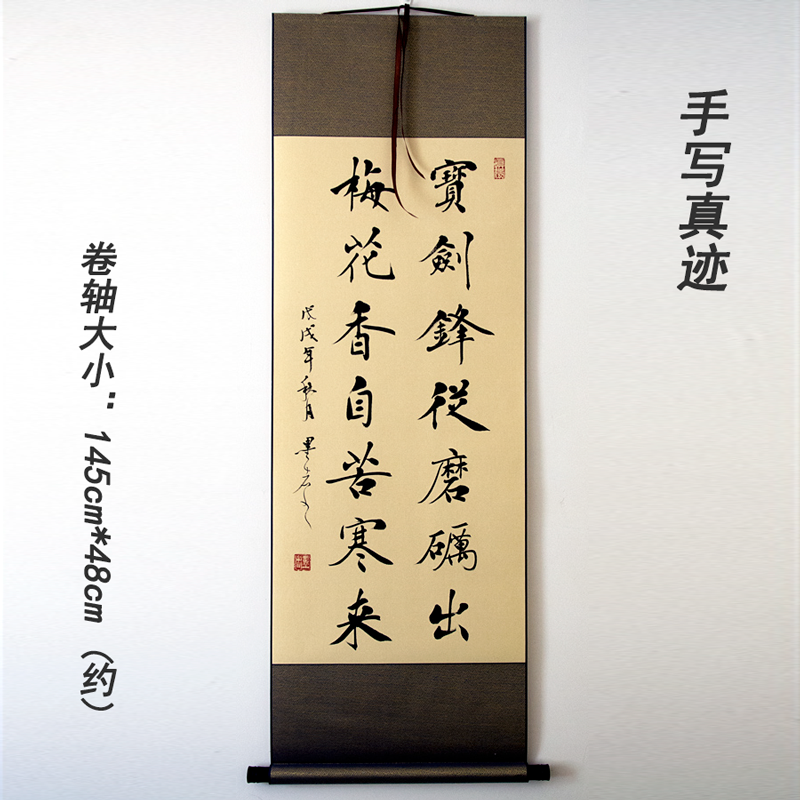 手写真迹
寶劍鋒從磨礪出
梅花香自苦寒来
戊戌年秋月
卷轴大小：145cm*48cm（约）